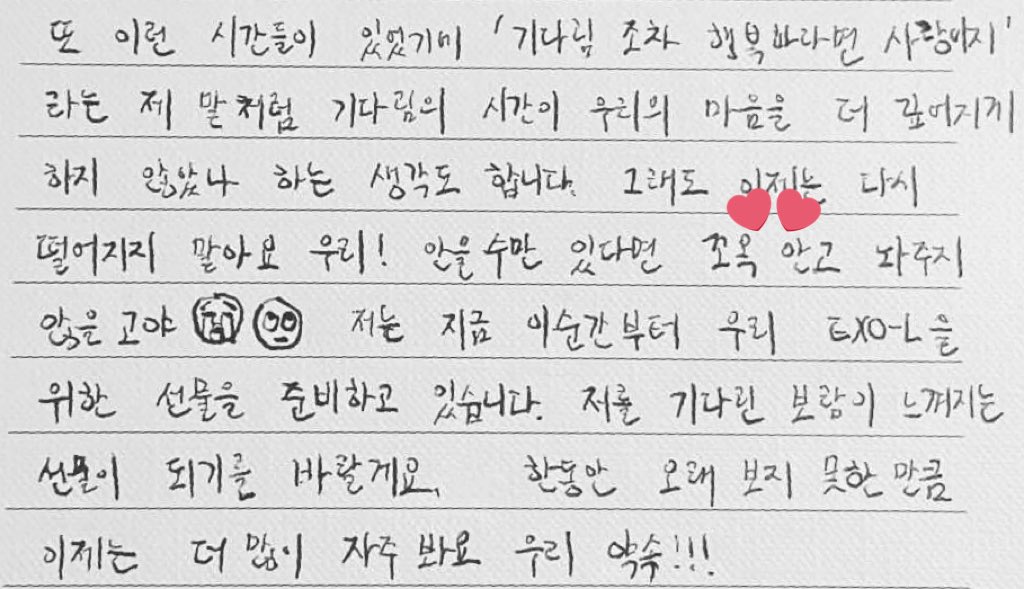 또 이런 시간들이 있었기에 '기다림 조차 행복하라면 사랑이지'
라는 제 말처럼 기다림의 시간이 우리의 마음을 더 깊어지게
하지 않았나 하는 생각도 합니다. 그래도 이제는 다시
떨어지지 말아요 우리! 안을 수만 있다면 꼬옥 안고 놔주지
않을 고야 저는 지금 이순간부터 우리 EXO-L을
위한 선물을 준비하고 있습니다. 저를 기다린 보람이 느껴지는
선물이 되기를 바랄게요, 한동안 오래 보지 못한 만큼
이제는 더 많이 자주 봐요 우리 약속!!!